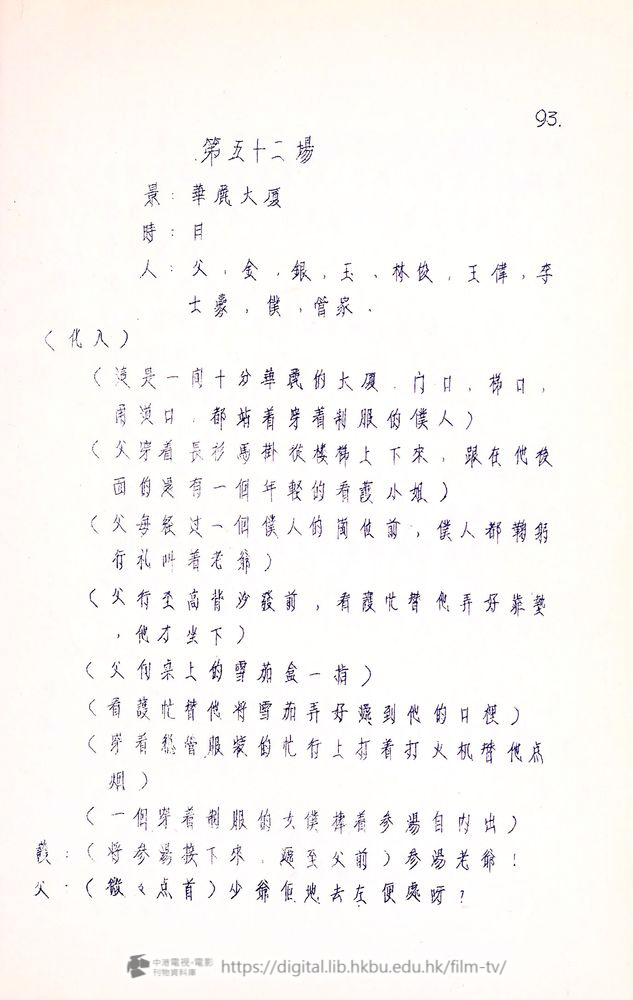 93.
第五十二場
景：華麗大厦
時：日
人：父，金，銀，玉、林俊，王偉，李
士豪，僕，管家．
（化入）
（這是一间十分華麗的大厦．门口，梯口，
周边口．都站着穿着制服的僕人）
（父穿着長衫馬掛從楼梯上下來，跟在他後
面的是有一個年輕的看護小姐）
（父每経过一個僕人的面前，僕人都鞠躬
行礼叫着老爺）
（父行至高背沙發前，看護忙替他弄好靠墊
，他才坐下）
（父向枱上的雪茄盒一指）
（看護忙替他將雪茄弄好遞到他的口裡）
（穿着総管服裝的忙行上打着打火机替他点
烟）
（一個穿着制服的女僕捧着参湯自内出）
護：（將参湯接下來．遞至父前）参湯老爺！
父：（微々点首）少爺佢地去左便處呀？
中港電視·電影
刊物資料庫
https://digital.lib.hkbu.edu.hk/film-tv/